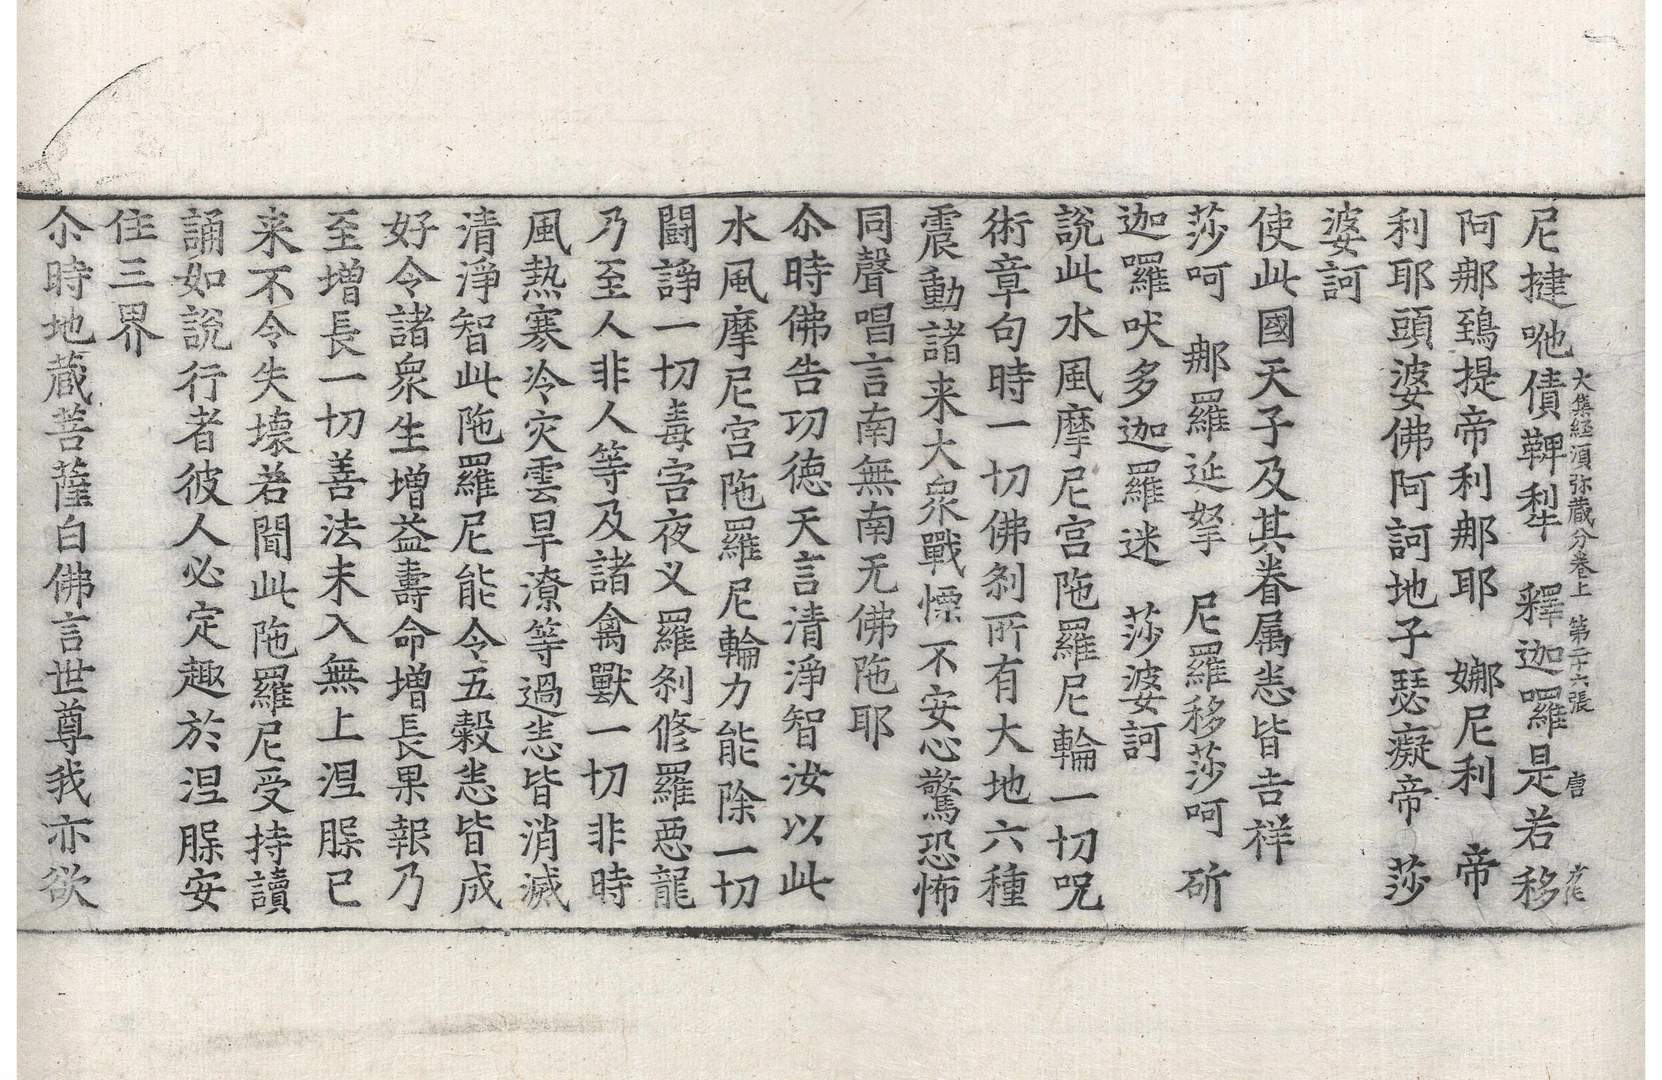 大集経湏弥蔵分卷上　第二十六張　唐
尼揵咃債鞞㸧　釋迦囉是若移
阿那鵄提帝利那耶　娜尼利　帝
利耶頭婆佛阿訶地子瑟癡帝　莎
婆訶
使此國天子及其眷属恙皆吉祥
莎呵　那羅延拏　尼羅移莎呵　斫
迦囉吠多迦羅迷　莎婆訶
說此水風摩尼宮陁羅尼輪一切呪
術章句時一切佛刹所有大地六種
震動諸来大衆戰慄不安心驚恐怖
同聲唱言南無南无佛陁耶
尒時佛告功德天言清淨智汝以此
水風摩尼宮陁羅尼輪力能除一切
鬪諍一切毒害夜叉羅刹修羅惡龍
乃至人非人等及諸禽獸一切非時
風熱寒冷灾雲旱潦等過恙皆消滅
清淨智此陁羅尼能令五糓恙皆成
好令諸衆生增益壽命增長果報乃
至增長一切善法未入無上涅腬已
来不令失壞若聞此陁羅尼受持讀
誦如說行者彼人必定趣於涅腬安
住三界
尒時地蔵菩薩白佛言世尊我亦欲